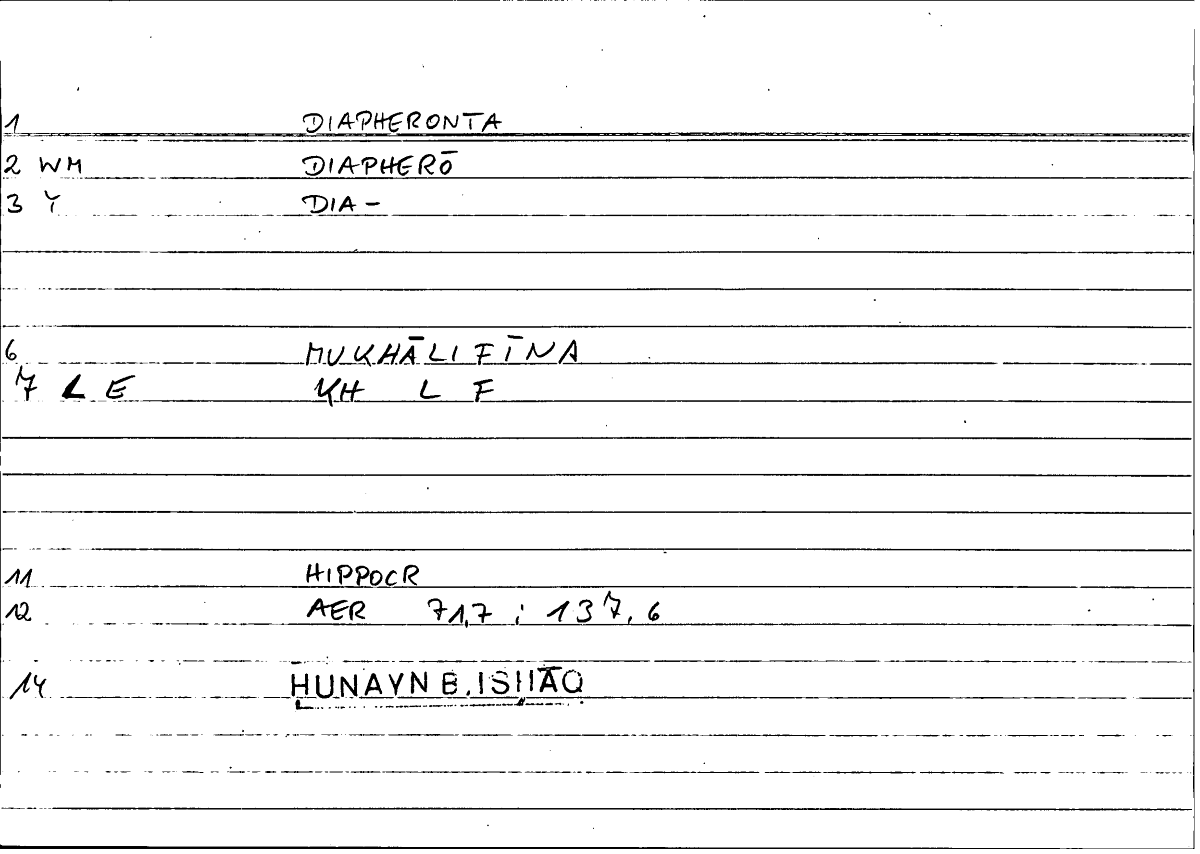 1 DIAPHERONTA
2 WM DIAPHERŌ
3 Y DIA-
6 MUKHĀLIFĪNA
7 L E KH L F
11 HIPPOCR
12 AER 71,7 ; 137,6
14 HUNAYN B. ISHĀQ